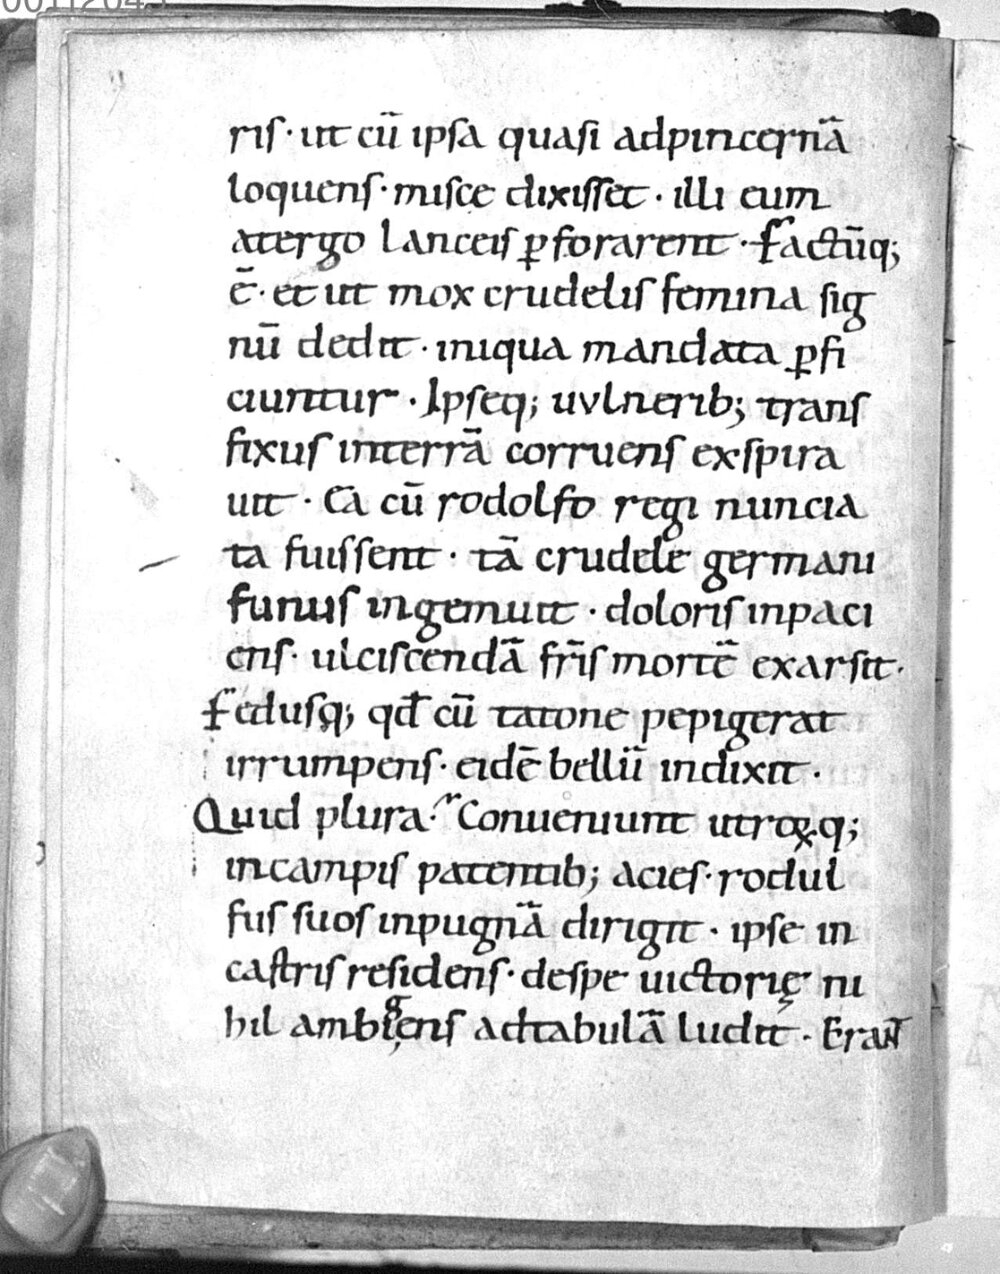 riſ· ut cū ipſa quaſi adpincernā
loquenſ· miſce dixiſſet · illi eum
atergo lanceiſ ꝑforarent · factūq;
ē· et ut mox crudeliſ femina ſig
nū dedit · iniqua mandata ꝑfi
ciuntur · Ipſeq; uvlnerib; tranſ
fixuſ interrā corruenſ exſpira
uit · Ea cū rodolfo regi nuncia
ta fuiſſent · tā crudele germani
funuſ ingemuit · doloriſ inpaci
enſ· ulciſcendā fr̄iſ mortē exarſit·
Feduſq; qđ cū tatone pepigerat
irrumpenſ· eidē bellū indixit ·
Quid plura· Conueniunt utroꝝq;
incampiſ patentib; acieſ· rodul
fuſ ſuoſ inpugnā dirigit · ipſe in
caſtriſ reſidenſ· deſpe uictorię ni
hil ambigenſ adtabulā ludit · Erant